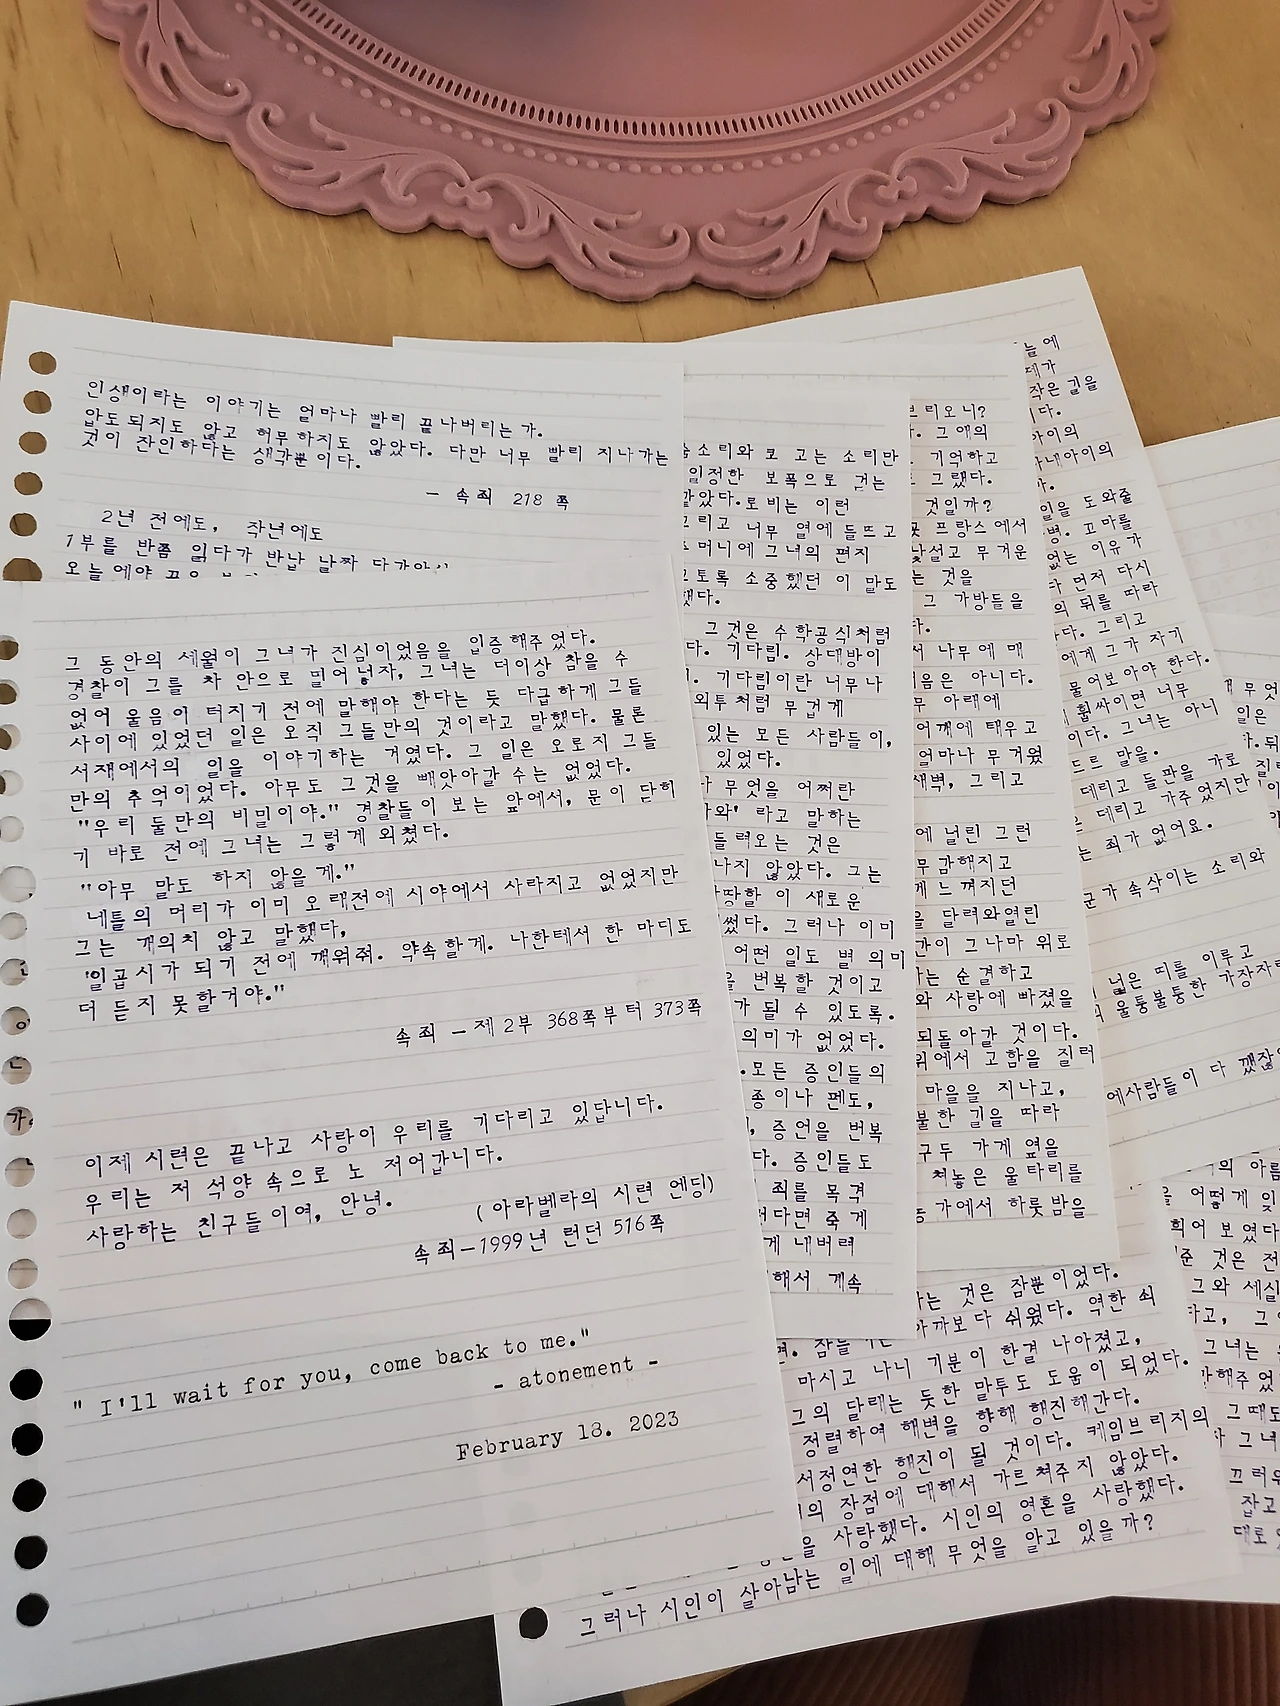 인생이라는 이야기는 얼마나 빨리 끝나버리는가.
압도되지도 않고 허무하지도 않았다. 다만 너무 빨리 지나가는
것이 잔인하다는 생각뿐이다.
- 속죄 218 쪽
2년 전에도, 작년에도
1부를 반쯤 읽다가 반납 날짜 다가와서
오늘에야
그 동안의 세월이 그녀가 진심이었음을 입증해주었다.
경찰이 그를 차 안으로 밀어넣자, 그녀는 더이상 참을 수
없어 울음이 터지기 전에 말해야 한다는 듯 다급하게 그들
사이에 있었던 일은 오직 그들만의 것이라고 말했다. 물론
서재에서의 일을 이야기하는 거였다. 그 일은 오로지 그들
만의 추억이었다. 아무도 그것을 빼앗아갈 수는 없었다.
"우리 둘만의 비밀이야." 경찰들이 보는 앞에서, 문이 닫히
기 바로 전에 그녀는 그렇게 외쳤다.
"아무 말도 하지 않을게."
네틀의 머리가 이미 오래전에 시야에서 사라지고 없었지만
그는 개의치 않고 말했다,
'일곱시가 되기 전에 깨워줘. 약속할게. 나한테서 한 마디도
더 듣지 못할거야."
속죄 - 제2부 368쪽부터 373쪽
이제 시련은 끝나고 사랑이 우리를 기다리고 있답니다.
우리는 저 석양 속으로 노 저어갑니다.
사랑하는 친구들이여, 안녕.
(아라벨라의 시련 엔딩)
속죄-1999년 런던 516쪽
" I'll wait for you, come back to me."
- atonement -
February 18. 2023
숨소리와 코 고는 소리만
일정한 보폭으로 걷는
같았다. 로비는 이런
그리고 너무 열에 들뜨고
머니에 그녀의 편지
그토록 소중했던 이 말도
했다.
그것은 수학공식처럼
다. 기다림. 상대방이
기다림이란 너무나
외투처럼 무겁게
있는 모든 사람들이,
있었다.
무엇을 어쩌란
와' 라고 말하는
들려오는 것은
나지 않았다. 그는
땅할 이 새로운
썼다. 그러나 이미
어떤 일도 별 의미
을 번복할 것이고
가 될 수 있도록.
의미가 없었다.
. 모든 증인들의
종이나 펜도,
, 증언을 번복
다. 증인들도
죄를 목격
한다면 죽게
게 내버려
해서 계속
브리오니?
. 그애의
기억하고
그랬다.
것일까?
곳 프랑스에서
낯설고 무거운
는 것을
그 가방들을
다.
서 나무에 매
음은 아니다.
무 아래에
어깨에 태우고
얼마나 무거웠
새벽, 그리고
에 널린 그런
무감해지고
게 느껴지던
을 달려와 열린
간이 그나마 위로
하는 순결하고
와 사랑에 빠졌을
되돌아갈 것이다.
위에서 고함을 질러
마을을 지나고,
불한 길을 따라
구두 가게 옆을
쳐놓은 울타리를
농가에서 하룻밤을
늘에
제가
작은 길을
다.
아이의
사내아이의
.
일을 도와줄
병. 꼬마를
없는 이유가
다 먼저 다시
의 뒤를 따라
다. 그리고
에게 그가 자기
물어보아야 한다.
휩싸이면 너무
이다. 그녀는 아니
드르 말을.
데리고 들판을 가로 질러
데리고 가주었지만
는 죄가 없어요.
군가 속삭이는 소리와
넓은 띠를 이루고
울퉁불퉁한 가장자리
에사람들이 다 깼잖
무엇
일은
. 뒤
는 것은 잠뿐이었다.
아까보다 쉬웠다. 역한 쇠
마시고 나니 기분이 한결 나아졌고,
그의 달래는 듯한 말투도 도움이 되었다.
정렬하여 해변을 향해 행진해간다.
서정연한 행진이 될 것이다. 케임브리지의
의 장점에 대해서 가르쳐주지 않았다.
을 사랑했다. 시인의 영혼을 사랑했다.
그러나 시인이 살아남는 일에 대해 무엇을 알고 있을까?
의 아름
을 어떻게 잊
희어 보였다
준 것은 전
그와 세실
다고, 그
그녀는
해주었
그때도
그녀
끄러우
잡고
대로